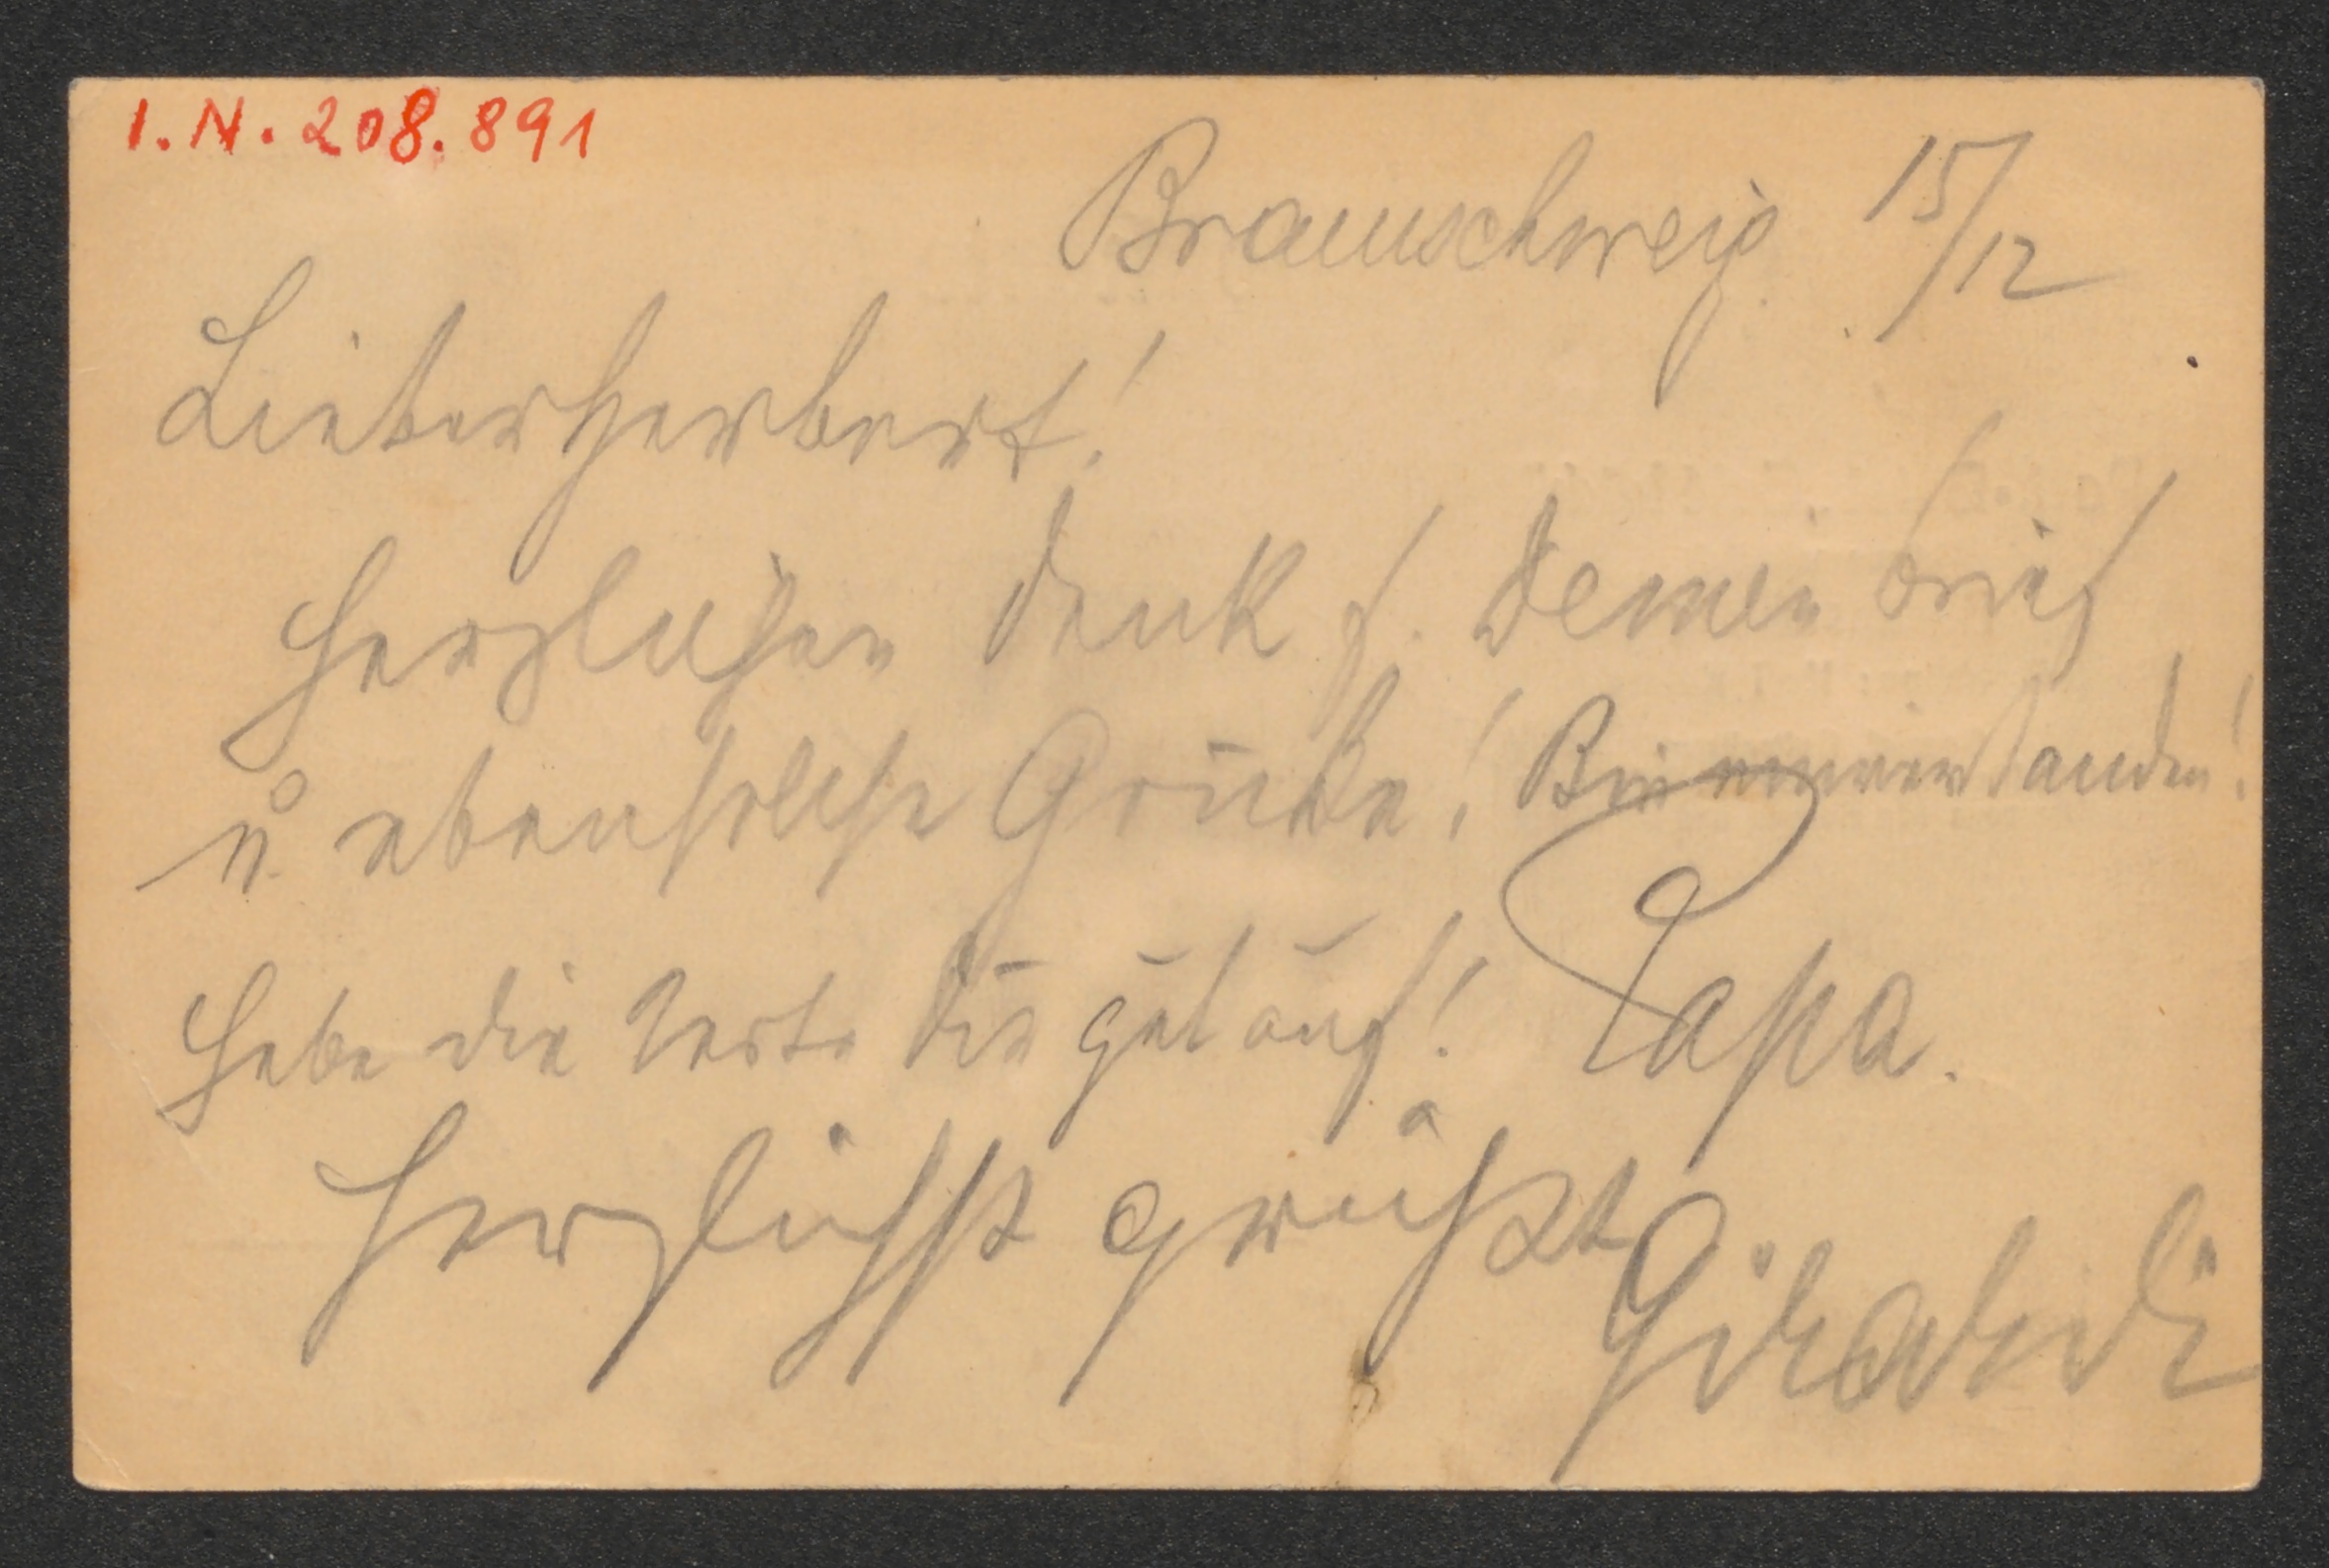 I.N. 208.891
Braunschweig 15/12
Lieber Herbert!
Herzlichen Dank f. Deinen Brief
u. ebensolche Grüße! Bin einverstanden!
Hebe die Karte Dir gut auf! Papa.
Herzlichst grüßt Girardi